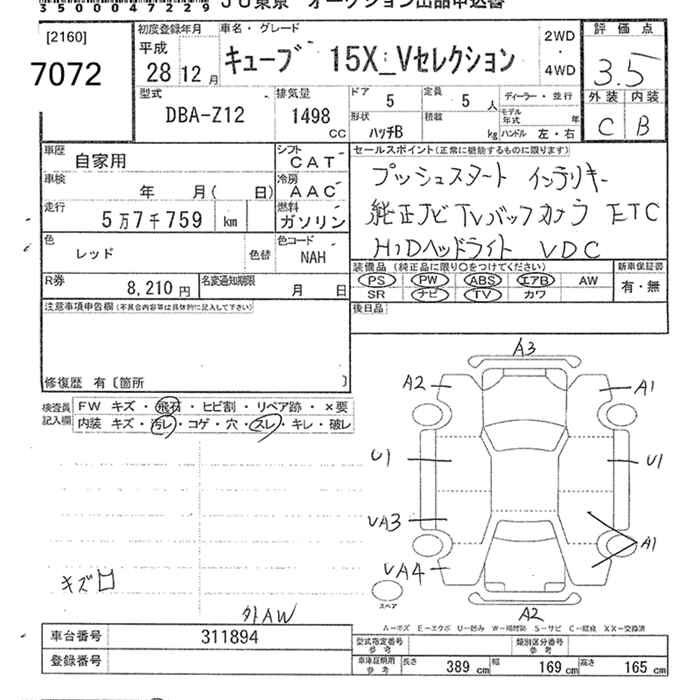 35000047229 JU東京 オークション出品申込書
[2160]
7072
初度登録年月 平成 28 12月
車名・グレード キューブ 15X_Vセレクション
2WD・4WD
評価点 3.5
外装 内装
C B
型式 DBA-Z12
排気量 1498 CC
ドア 5 定員 5 人 ディーラー・並行
形状 ハッチB 積載 kg モデル年式 年
ハンドル 左・右
車歴 自家用
シフト CAT
車検 年 月( 日)
冷房 AAC
走行 5万7千759 km
燃料 ガソリン
色 レッド 色替
色コード NAH
R券 8,210円
名変通知期限 月 日
セールスポイント(正常に機能するものに限ります)
プッシュスタート インテリキー
純正ナビ TVバックカメラ ETC
HiDヘッドライト VDC
装備品(純正品に限り○をつけてください)
PS PW ABS エアB AW
SR ナビ TV カワ
新車保証書 有・無
後日品
注意車項申告欄(不具合内容等は具体的に記入して下さい)
修復歴 有〔箇所 〕
検査員記入欄
FW キズ・飛石・ヒビ割・リペア跡・×要
内装 キズ・汚レ・コゲ・穴・スレ・キレ・破レ
A3
A2 A1
U1 U1
UA3
A1
UA4
A2
スペア
キズ
外AW
A−キズ E−エクボ U−凹み W−補修跡 S−サビ C−腐食 XX−交換済
車台番号 311894
登録番号
型式指定番号 参考 類別区分番号 参考
車庫証明用 参考 長さ 389cm 幅 169cm 高さ 165cm